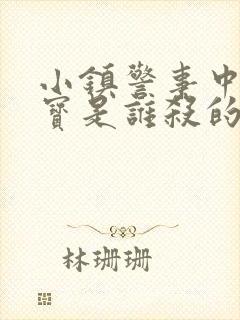 小鎮警事中
寶是誰殺的
林珊珊